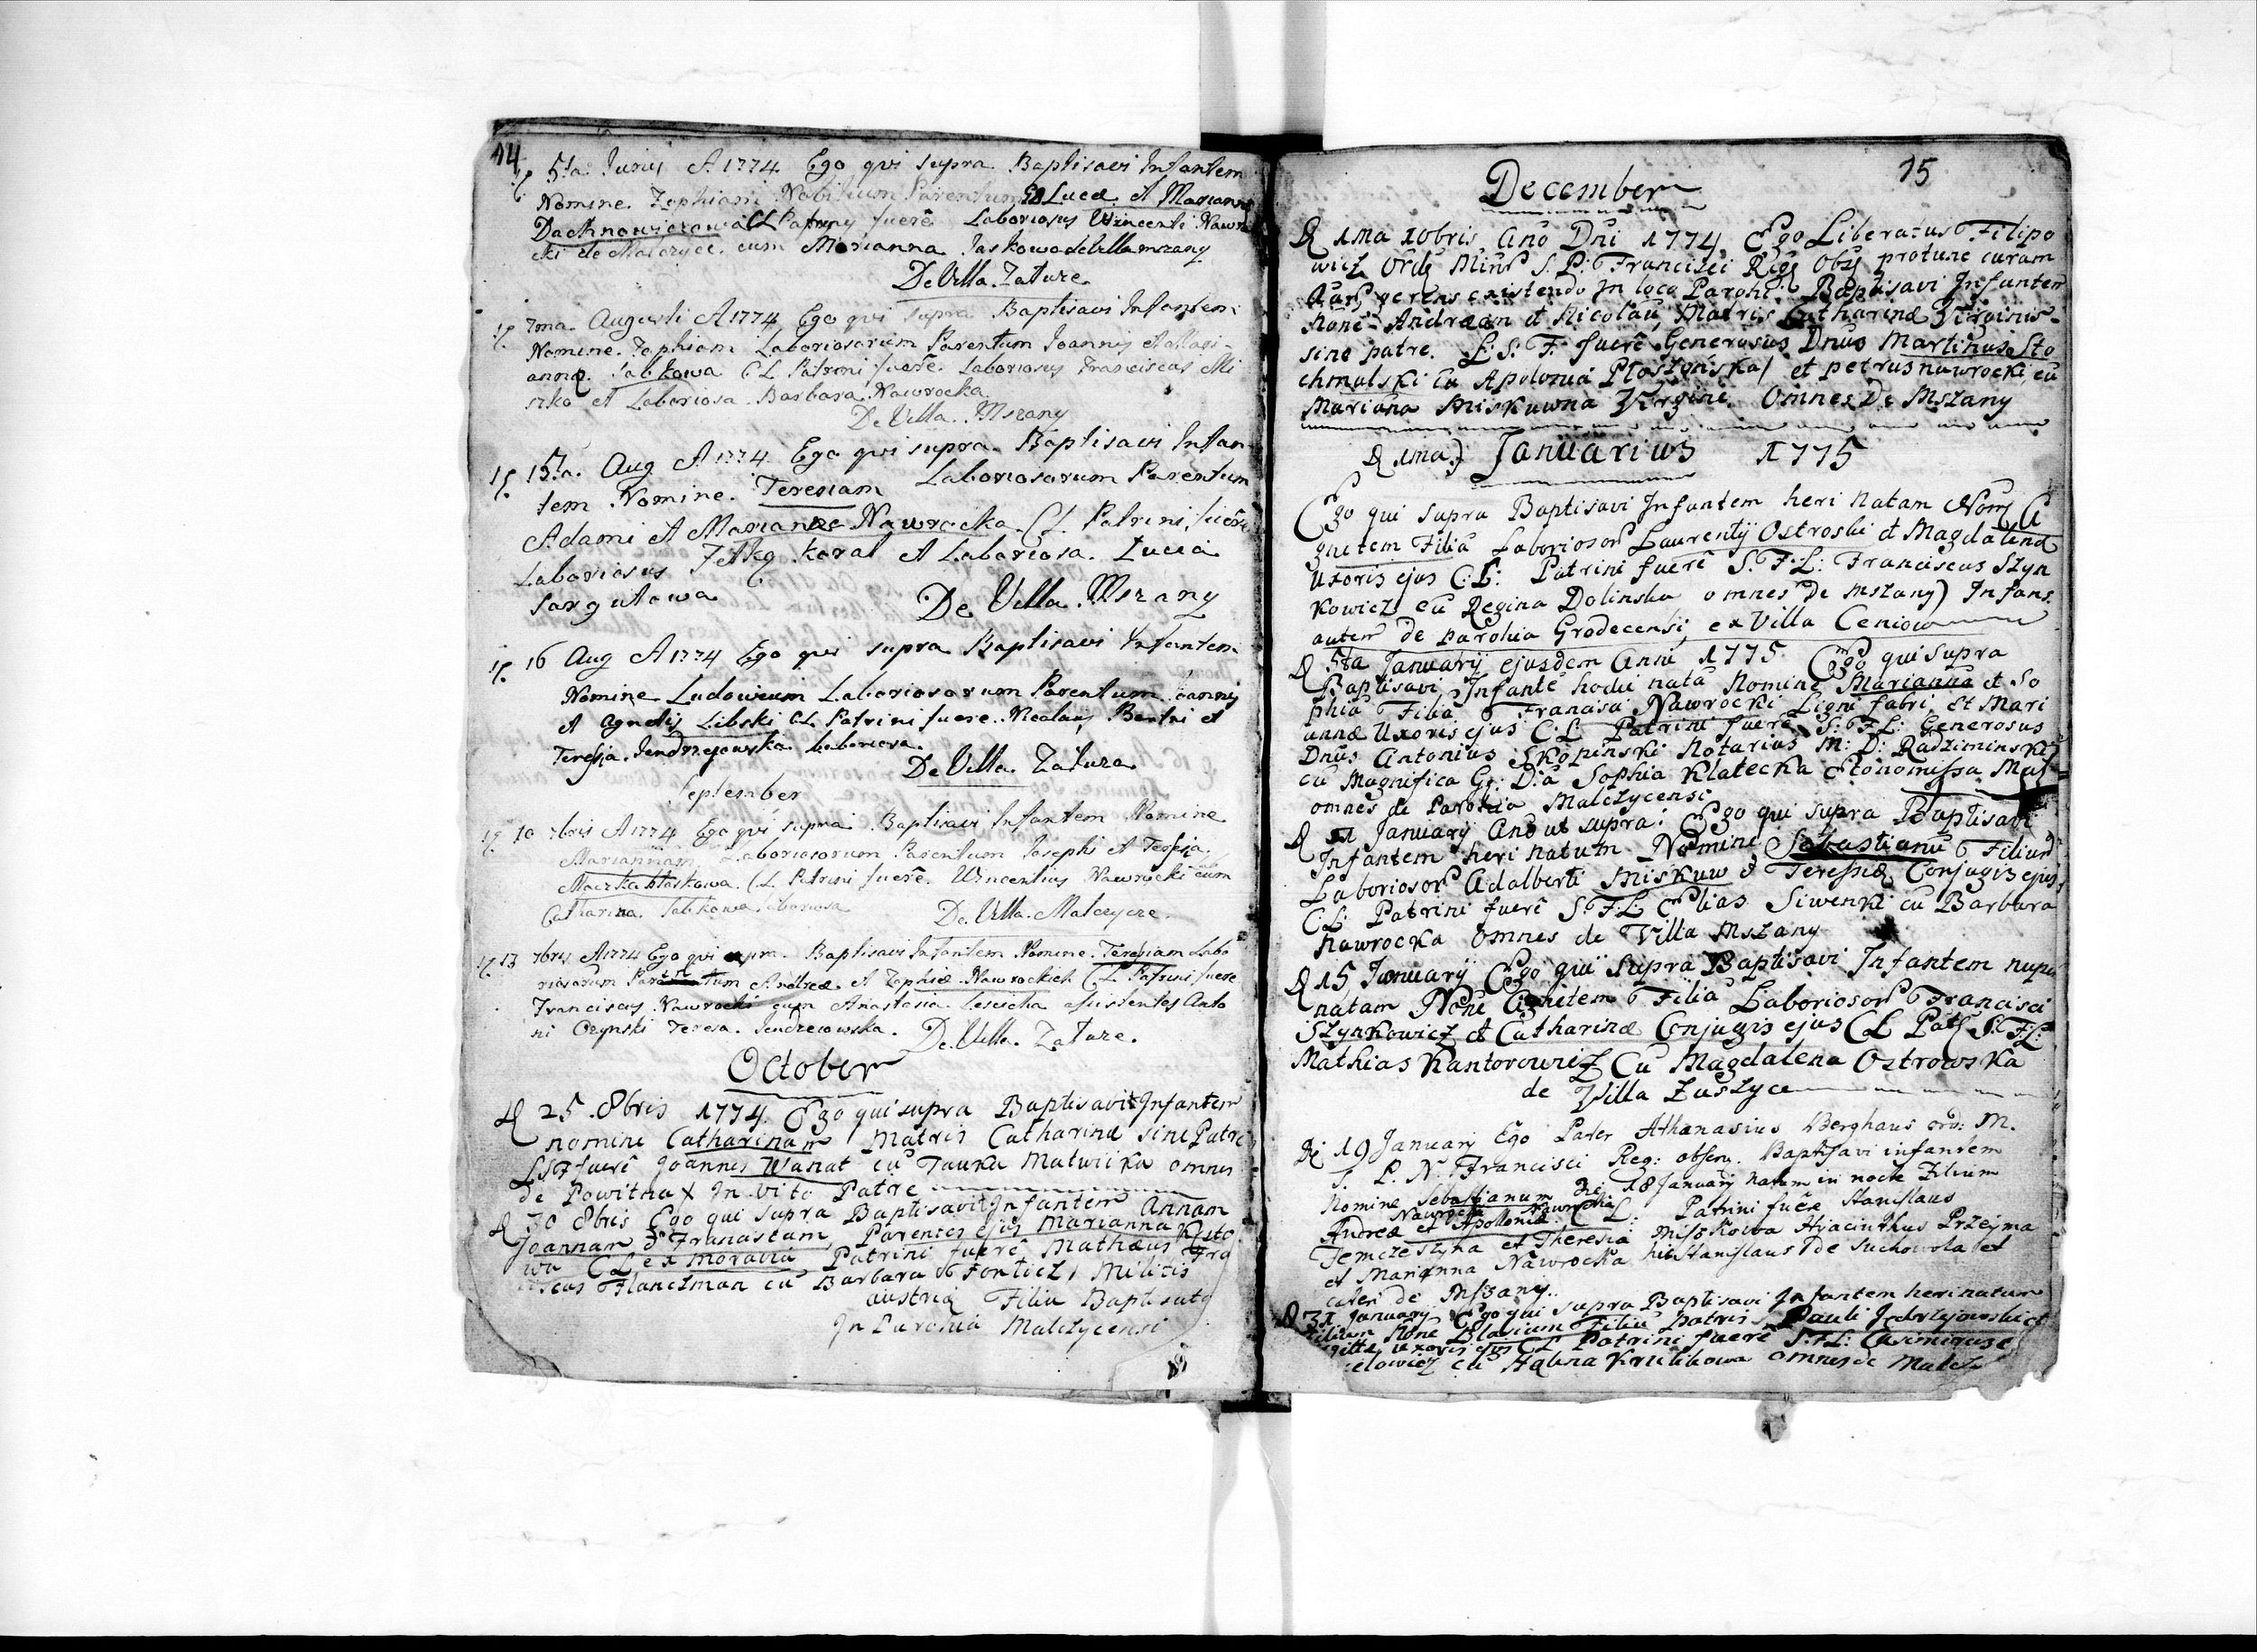 14
5ta Junij A 1774 Ego qui supra Baptisavi Infantem
Nomine. Zophiam Nobilium Parentum Lucæ et Mariannæ
Dachnowiczowa CL Patriny fuerê Laboriosus Wincenti Nawro
cki de Malczyce. cum Marianna Jaskowa de Villa mszany
De Villa. Zatuze
7ma. Augusti A 1774 Ego qui supra Baptisavi Infantem
Nomine. Zophiam Laboriosorum Parentum Joannis et Mari
annæ. Jabkowa CL Patrini fuerê. Laboriosus Franciscus Mi
szko et Laboriosa. Barbara Nawrocka
De Villa. Mszany
15ta. Aug A 1774 Ego qui supra. Baptisavi Infan
tem Nomine. Teresiam Laboriosorum Parentum
Adami et Mariannæ Nawrocka. CL. Patrini fuerê
Laboriosus Fetko Koral et Laboriosa. Lucia
Sargutowa
De Villa. Mszany
16 Aug A 1774 Ego qui supra Baptisavi Infantem
Nomine Ludowicum Laboriosorum Parentum Joannis
et Agnetis Libski CL Patrini fuere. Nicolaus et
Teresia. Jendrzejowska Laboriosa.
De Villa. Zatuza
September
10 7bris A 1774 Ego qui supra Baptisavi Infantem Nomine
Mariannam, Laboriosorum Parentum Josephi et Teresia
CL Patrini fuerê. Wincentius Nawrocki cum
Catharina. Jabkowa Laboriosa
De. Villa. Malczyce.
13 7bris A 1774 Ego qui supra. Baptisavi Infantem Nomine. Teresiam Labo
riosorum Parentum Andreæ et Zophiæ. Nawrockich CL Patrini fuere
Franciscus Nawrocki cum Anastasia. asistentes Anto
ni Teresa. Jendrzeiowska. De. Villa. Zatuze.
October
D 25. 8bris 1774. Ego qui supra Baptisavit Infantem
nomine Catharinam Matris Catharinæ sine Patre
LSF fuerê Joannes Wanat cû Tauka Matwiika omnes
de Powitna X In vito Patre
D 30 8bris Ego qui supra Baptisavit Infantem Annam
Joannam & Franciscam, Parentes ejus Marianna
CL ex Moravia Patrini fuerê Mathæus Fra
ciscus Flanctman cû Barbara Militis
austriæ Filia Baptisata
In Parohia Malczycensi
15
December
D 1ma 10bris Anô Dni 1774. Ego Liberatus Filipo
wicz Ordis Minr S. P. Francisci Regs Obs protunc curam
gerens existendo In loco Parohi. Baptisavi Infantem
None Andræam et Nicolaû, Matris Catharinæ Virginis
sine patre. L. S. F. fuerê Generosus Dnus Martinus Sto
chmalski Cû Apolonia et petrus nawrocki, cû
Mariana Miskuwna Virgine. Omnes De Mszany
D 1ma) Januarius 1775
Ego qui supra Baptisavi Infantem heri natam Nom A
gnetem Filiâ Laboriosor Laurentij Ostroski et Magdalenæ
Uxoris ejus C: L: Patrini fuerê S: F: L: Franciscus Szyn
kowicz cû Regina Dolinska omnes de mszany) Infans.
autem de parohia Grodecensi, ex Villa Ceniow
D 5ta Januarij ejusdem Anni 1775. Ego qui supra
Baptisavi Infantê hodie natâ Nomine Marianna et So
phia Filiâ Francisci Nawrocki Ligni fabri, et Mari
annæ Uxoris ejus C: L Patrini fuerê S: F: L: Generosus
Dnus Antonius Skopinski Notarius M: D: Radziminski
cû Magnifica Gs: D:a Sophia Klatecka Økonomissa Mal
omnes de Parohia Malczycensi
D 11 January Anô ut supra. Ego qui supra Baptisavi
Infantem heri natum Nomine Sebastianû Filium
Laboriosor Adalberti Miskuw & Teressiæ Conjugis ejus
C: L: Patrini fuerê S: F: L Elias Siwenki cû Barbara
Nawrocka omnes de Villa Mszany
D 15 January Ego qui supra Baptisavi Infantem nupe
natam None Agnetem Filiâ Laboriosor Francisci
Szynkowicz et Catharinæ Conjugis ejus CL Pat S: F: L:
Mathias Kantorowicz Cû Magdalena Ostrowska
de Villa Zuszyce
D 19 January Ego Pater Athanasius Berghaus ord: M.
S. P. N. Francisci Reg: obser. Baptisavi infantem
Nomine Sebastianum die 18 January natum in nocte Filium
Nawrocki Nawrocka
Andreæ et Apolloniæ. CL: Patrini fuêre Stanislaus
et Theresia Miszkowa Hyacinthus Przejma
et Marianna Nawrocka hic Stanislaus de Suchowola et
cæteri de Mszany.
D 31 January Ego qui supra Baptisavi Infantem heri natum
Filium None Blasium Filiû patris Pauli Jedrzejowski et
uxoris ejus CL Patrini fuerê S: F: L: Casimirus
cû Halena Krulikowa omnes de Malcz